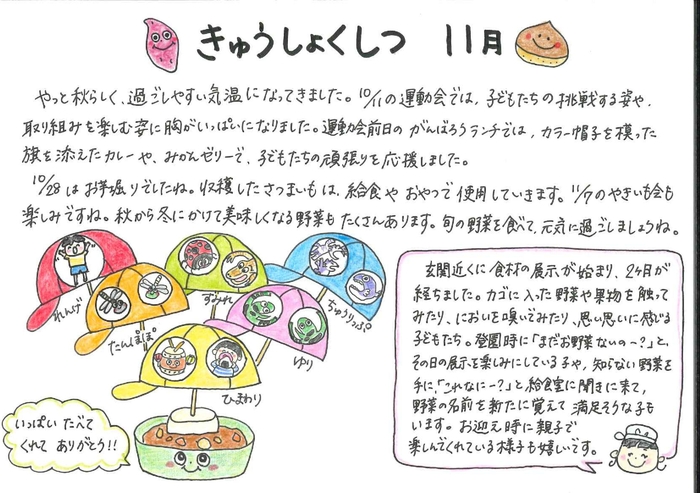 きゅうしょくしつ 11月
やっと秋らしく、過ごしやすい気温になってきました。10/11の運動会では、子どもたちの挑戦する姿や、
取り組みを楽しむ姿に胸がいっぱいになりました。運動会前日のがんばろうランチでは、カラー帽子を模った
旗を添えたカレーや、みかんゼリーで、子どもたちの頑張りを応援しました。
10/28はお芋掘りでしたね。収穫したさつまいもは、給食やおやつで使用していきます。11/7のやきいも会も
楽しみですね。秋から冬にかけて美味しくなる野菜もたくさんあります。旬の野菜を食べて、元気に過ごしましょうね。
れんげ
たんぽぽ
すみれ
ちゅうりっぷ
ゆり
ひまわり
いっぱい たべて
くれて ありがとう!!
玄関近くに食材の展示が始まり、2ヶ月が
経ちました。カゴに入った野菜や果物を触って
みたり、においを嗅いでみたり、思い思いに感じる
子どもたち。登園時に「まだお野菜ないの~?」と、
その日の展示を楽しみにしている子や、知らない野菜を
手に、「これなに~?」と給食室に聞きに来て、
野菜の名前を新たに覚えて満足そうな子も
います。お迎え時に親子で
楽しんでくれている様子も嬉しいです。